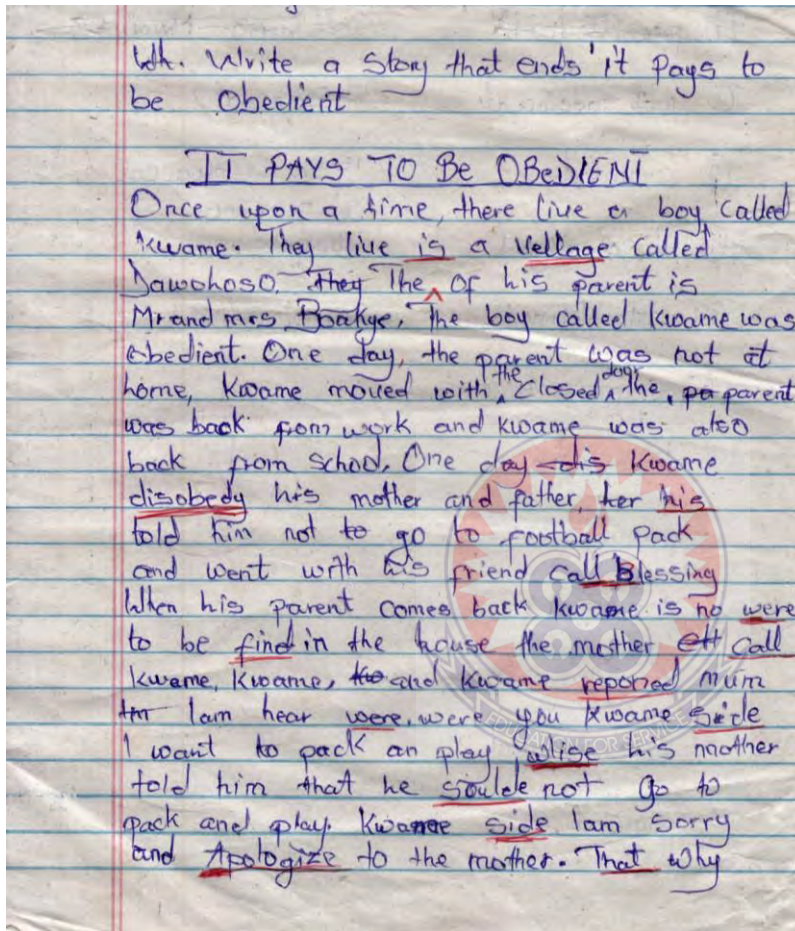 Wk. Write a Story that ends 'it pays to
be Obedient
IT PAYS TO Be OBeDIENT
Once upon a time, there live a boy called
Kwame. They live is a Vellage called
Dawohoso. They The ^ of his parent is
Mr and mrs Boakye, The boy called Kwame was
obedient. One day, the parent was not at
home, Kwame moved with the closed door the, pa parent
was back from work and Kwame was also
back from school, One day dis Kwame
disobedy his mother and father, her his
told him not to go to football pack
and went with his friend call Blessing
When his parent comes back Kwame is no were
to be find in the house the mother call
Kwame, Kwame, and Kwame reponed mum
Iam hear were, were you Kwame side
I want to pack an play wlise his mother
told him that he soulde not go to
pack and play. Kwame side Iam sorry
and Apologize to the mother. That why
EDUCATION FOR SERVICE